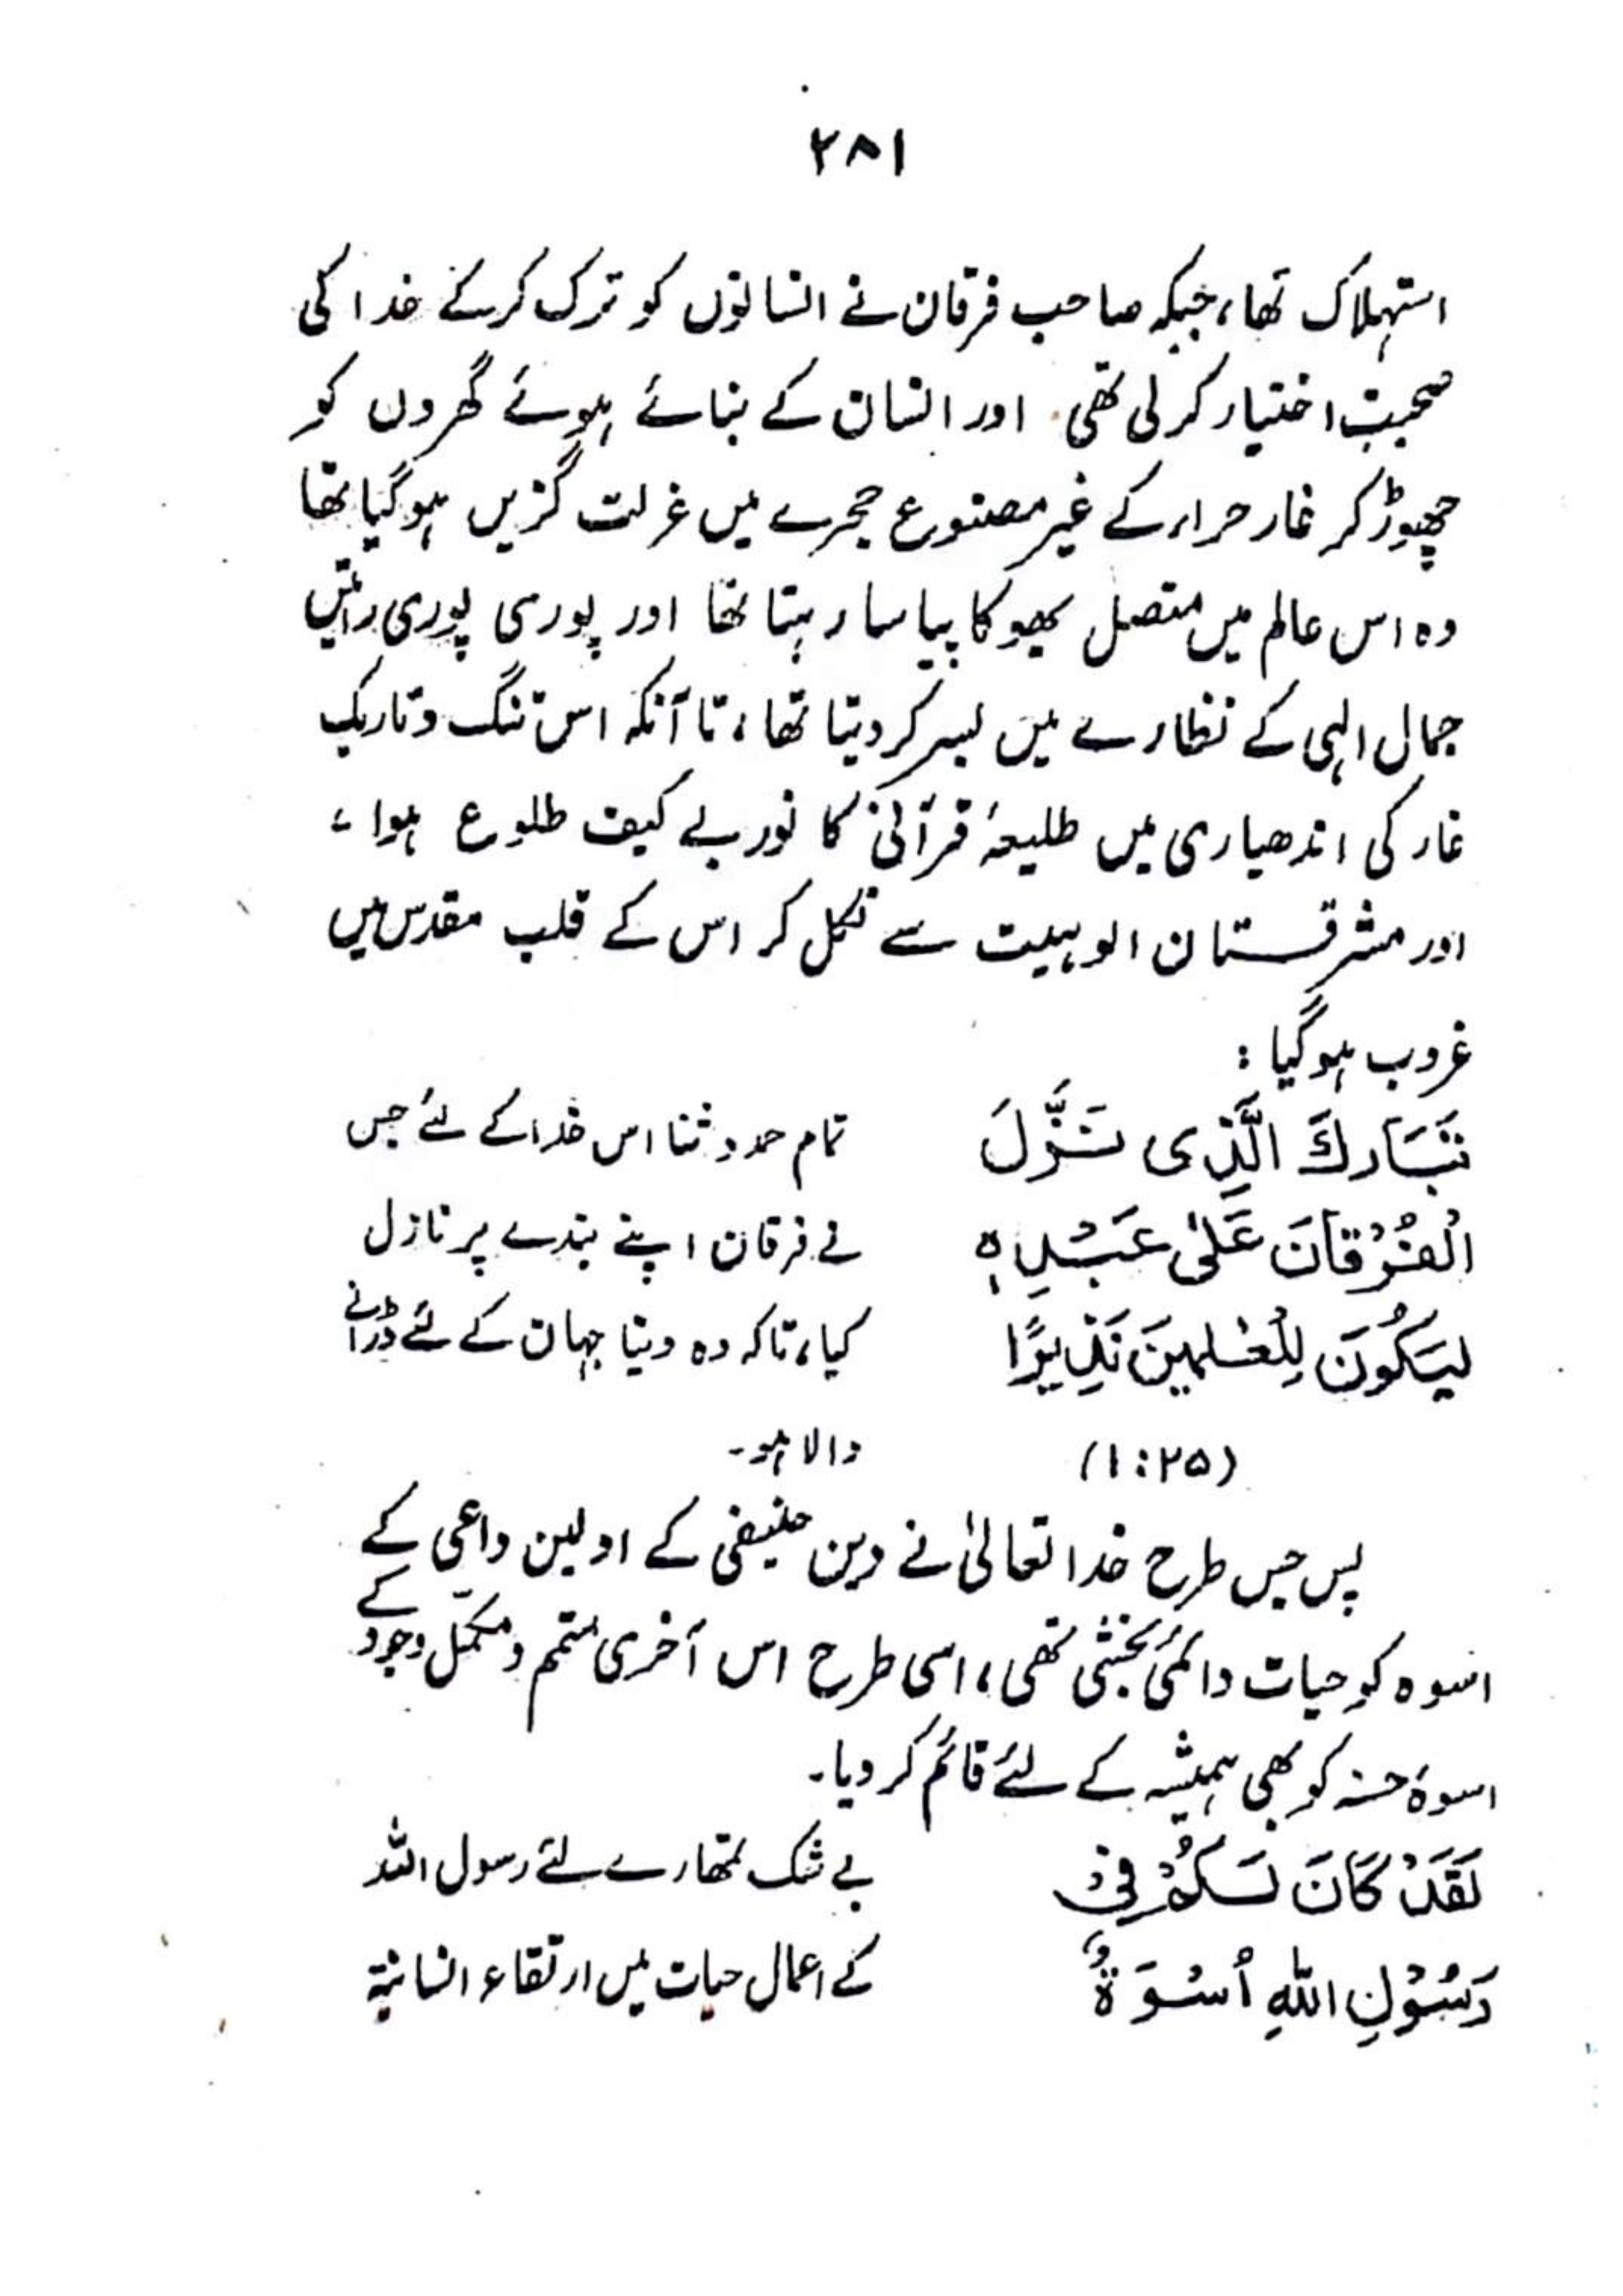 ۲۸۱
استہلاک تھا، جبکہ صاحب فرقان نے انسانوں کو ترک کرکے خدا کی
صحبت اختیار کر لی تھی اور انسان کے بنائے ہوئے گھروں کو
چھوڑ کر غار حراء کے غیر مصنوع حجرے میں عزلت گزیں ہو گیا تھا
وہ اس عالم میں متصل بھوکا پیاسا رہتا تھا اور پوری پوری راتیں
جمال الہی کے نظارے میں بسر کر دیتا تھا، تا آنکہ اس تنگ و تاریک
غار کی اندھیاری میں طلیعۂ قرآنی کا نور بے کیف طلوع ہوا،
اور مشرقستان الوہیت سے نکل کر اس کے قلب مقدس میں
غروب ہو گیا :
تَبَارَكَ الَّذِی نَزَّلَ
الْفُرْقَانَ عَلٰی عَبْدِہٖ
لِیَکُوْنَ لِلْعٰلَمِیْنَ نَذِیْرًا
(۱:۲۵)
تمام حمد و ثنا اس خدا کے لئے جس
نے فرقان اپنے بندے پر نازل
کیا، تاکہ وہ دنیا جہان کے لئے ڈرانے
والا ہو۔
پس جس طرح خدا تعالیٰ نے دین حنیفی کے اولین داعی کے
اسوہ کو حیات دائمی بخشی تھی، اسی طرح اس آخری متمم و مکمّل وجود کے
اسوۂ حسنہ کو بھی ہمیشہ کے لئے قائم کر دیا۔
لَقَدْ کَانَ لَکُمْ فِیْ
رَسُوْلِ اللّٰہِ اُسْوَۃٌ
بے شک تمھارے لئے رسول اللہ
کے اعمال حیات میں ارتقاء انسانیۃ